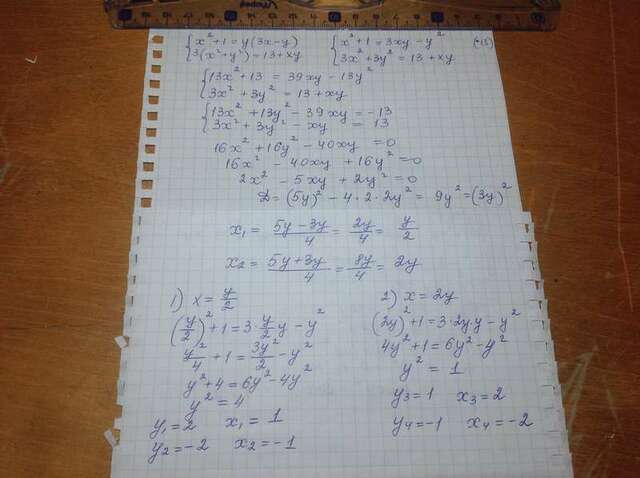 {x²+1=y(3x-y)
{3(x²+y²)=13+xy
{x²+1=3xy-y²
{3x²+3y²=13+xy
(·13)
{13x²+13=39xy-13y²
{3x²+3y²=13+xy
{13x²+13y²-39xy=-13
{3x²+3y²-xy=13
16x²+16y²-40xy=0
16x²-40xy+16y²=0
2x²-5xy+2y²=0
D=(5y)²-4·2·2y²=9y²=(3y)²
x₁=(5y-3y)/4=2y/4=y/2
x₂=(5y+3y)/4=8y/4=2y
1) x=y/2
(y/2)²+1=3·y/2 y-y²
y²/4+1=3y²/2-y²
y²+4=6y²-4y²
y²=4
y₁=2 x₁=1
y₂=-2 x₂=-1
2) x=2y
(2y)²+1=3·2y·y-y²
4y²+1=6y²-y²
y²=1
y₃=1 x₃=2
y₄=-1 x₄=-2